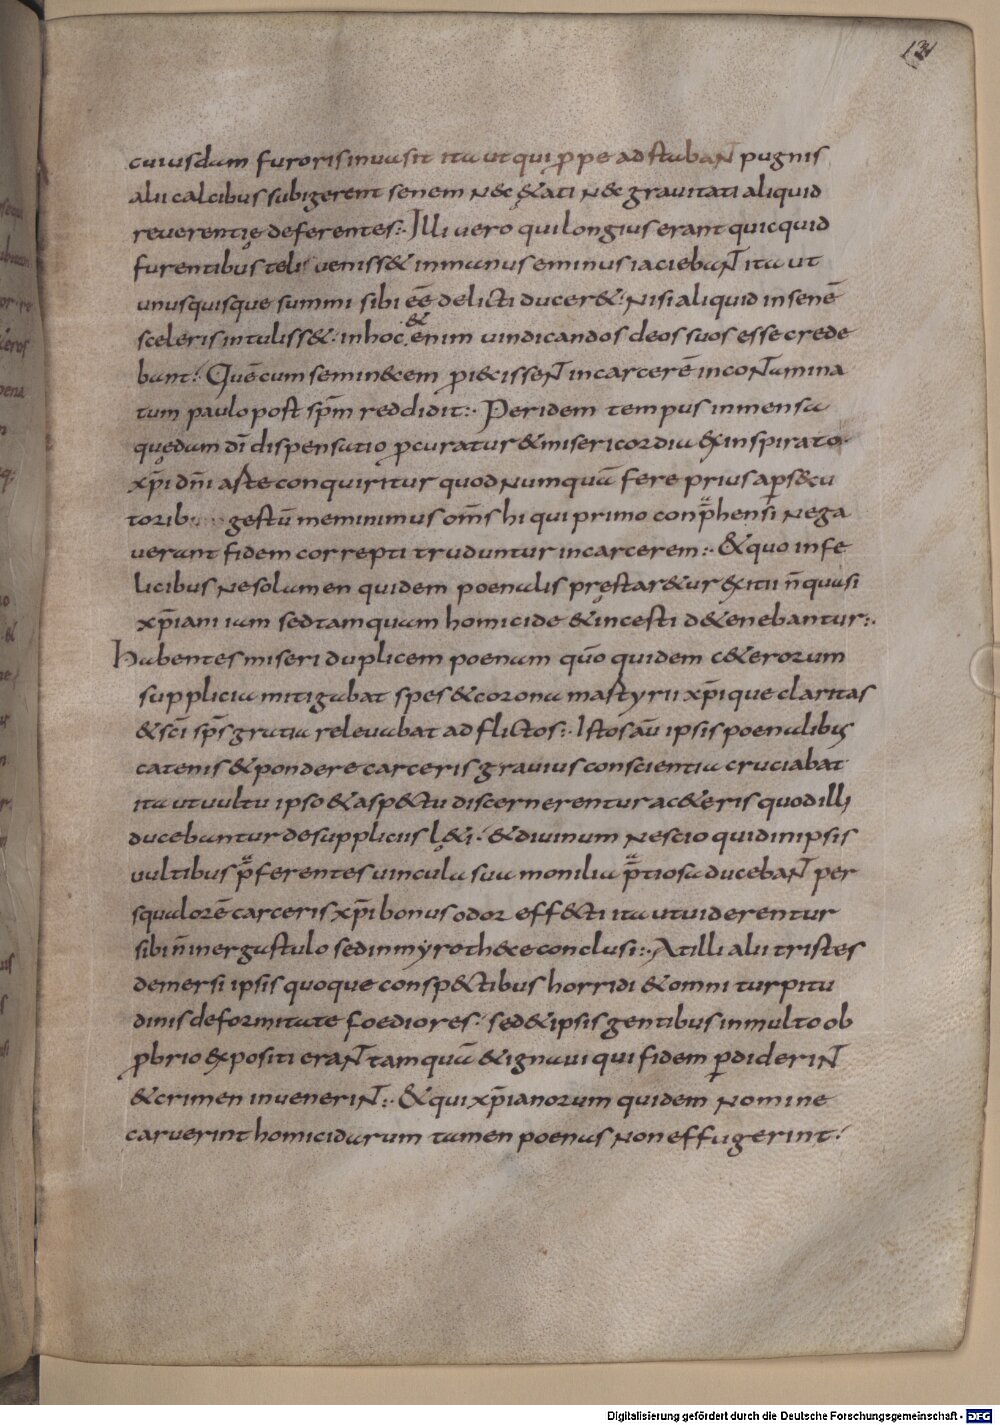 134
cuiusdam furoris inuasit ita ut qui ꝓpe ad stabant pugnis
alii calcibus subigerent senem nec &ati nec grauitati aliquid
reuerentię deferentes:· Illi uero qui longius erant quicquid
furentibus telis ueniss& inmanus eminus iaciebant ita ut
unusquisque summi sibi eē delicti ducer&· Nisi aliquid in senē
sceleris intuliss&· inhoc & enim uindicandos deos suos esse crede
bant:· Quē cum seminecem piecissent incarcerē incontamina
tum paulo post sp̄m reddidit:· Per idem tempus inmensa
quędam dī dispensatio ꝓcuratur & misericordia exinspirato
xp̄i dn̄i aste conquiritur quod numquā fere prius a ꝑsecu
torib gestū meminimus om̄s hi qui primo conp̄hensi nega
uerant fidem correpti truduntur incarcerem:· & quo infe
licibus ne solamen quidem poenalis pręstar&ur exitii n̄ quasi
xp̄iani iam sed tamquam homicide & incesti d&enebantur:·
Habentes miseri duplicem poenam qūo quidem c&erorum
supplicia mitigabat spes & corona mastyrii xp̄ique claritas
& sc̄i sp̄s gratia releuabat ad flictos:· Istos aū ipsis poenalibus
catenis & pondere carceris grauius conscientia cruciabat
ita ut uultu ipso & aspectu discernerentur a c&eris quod illi
ducebantur desuppliciis l&i· & diuinum nescio quid inipsis
uultibus p̄ferentes uincula sua monilia p̄tiosa ducebant per
squalorē carceris xp̄i bonus odor effecti ita utuiderentur
sibi n̄ inergastulo sed inmyrothece conclusi:· At illi alii tristes
demersi ipsis quoque conspectibus horridi & omni turpitu
dinis deformitate foediores· sed & ipsis gentibus inmulto ob
ꝓbrio expositi erant tamquā & ignaui qui fidem ꝑdiderint
& crimen inuenerint:· & qui xp̄ianorum quidem nomine
caruerint homicidarum tamen poenas non effugerint·
Digitalisierung gefördert durch die Deutsche Forschungsgemeinschaft - DFG